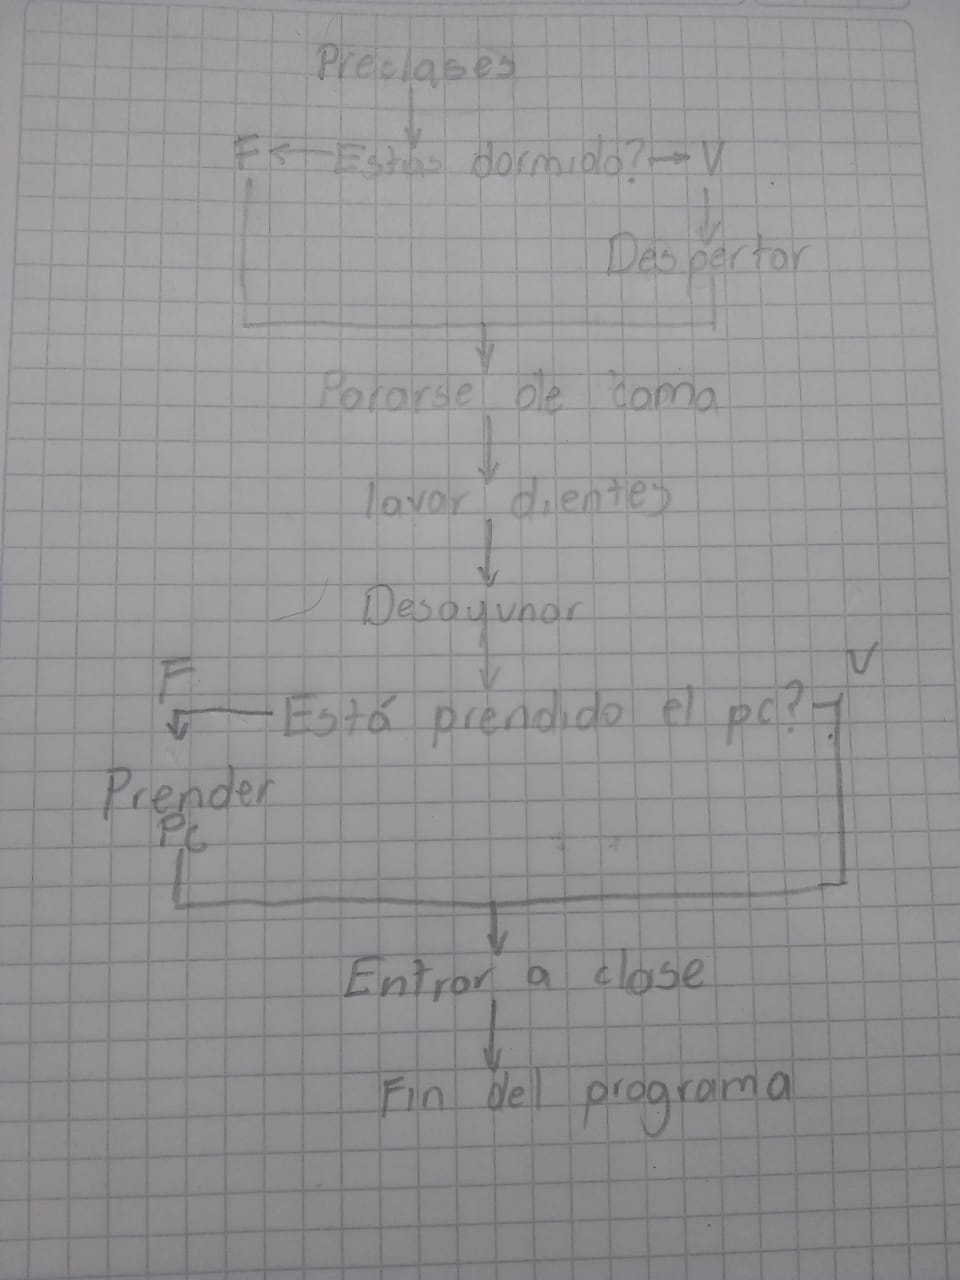 Preclases
F Estás dormido? V
Despertar
Pararse de cama
lavar dientes
Desayunar
F V
Está prendido el pc?
Prender
PC
Entrar a clase
Fin del programa